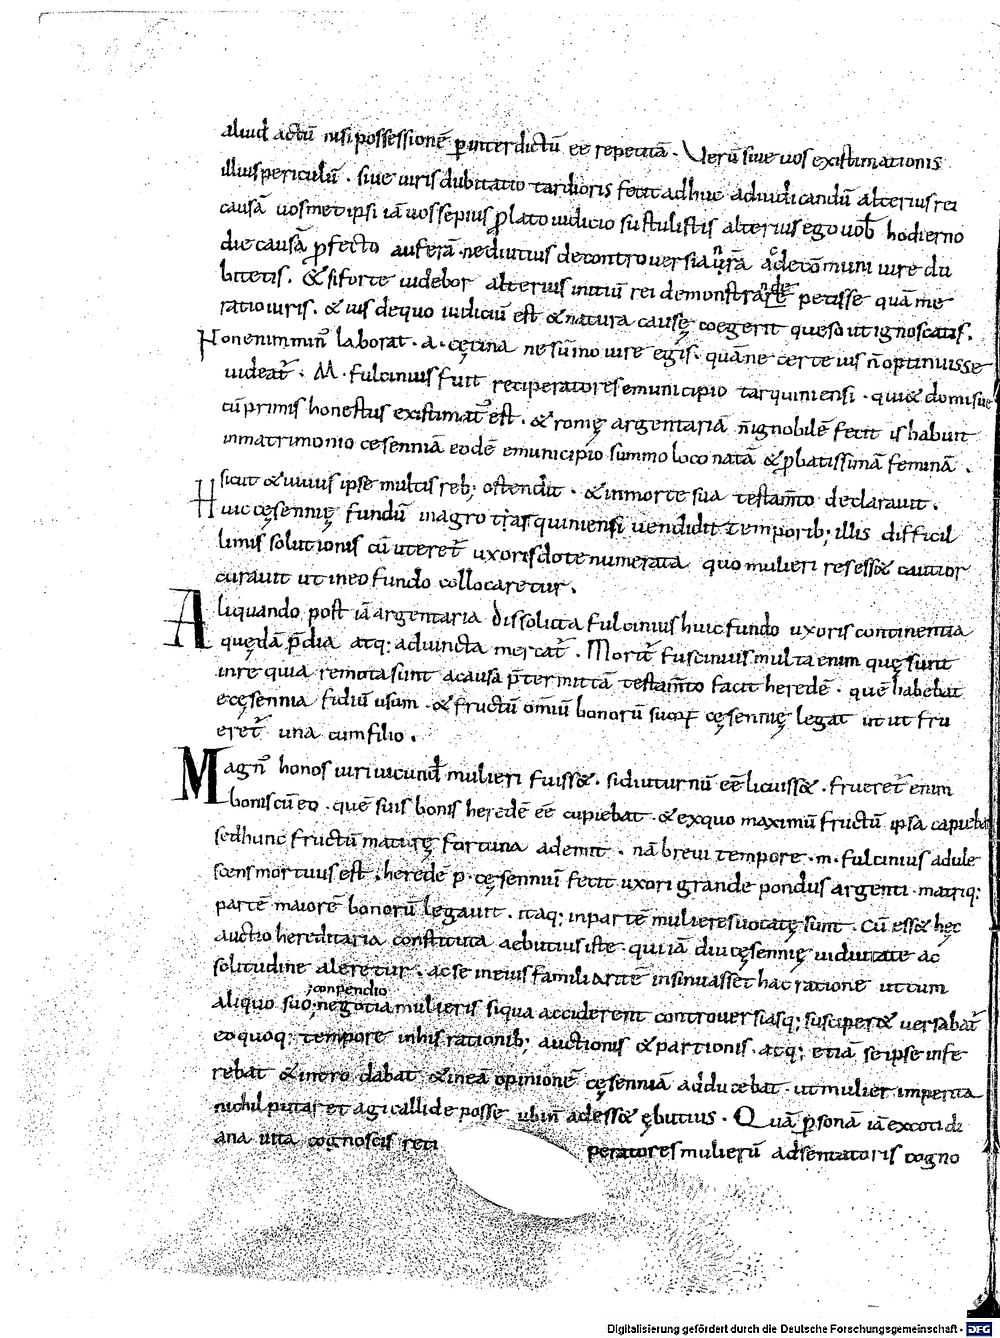 aliud actū nisi possessionē p interdictū ee repetitā. Verū siue uos existimationis
illius periculū. siue iuris dubitatio tardioris fecit adhuc adiudicandū alterius rei
causā uosmet ipsi iā uos sepius plato iudicio sustulistis alterius ego uob hodierno
die causā pfecto auferā ne diutius de controuersia nr̄ā ac de cōmuni iure du
bitetis. & si forte uidebor alterius initiū rei demonstranderē petisse quā me
ratio iuris. & ius de quo iudiciū est & natura causę coegerit queso ut ignoscatis.
Non enim min' laborat. a. cęcina ne sūmo iure egis. quā ne certe ius n̄ optinuisse
uideat̄. M. fulcinius fuit reciperatores e municipio tarquiniensi. qui & domi sue
cū primis honestus existimat' est. & romę argentariā n̄ ignobilē fecit is habuit
in matrimonio cesenniā eodē e municipio summo loco natā & pbatissimā feminā.
sicut & uiuus ipse multis reb; ostendit. & in morte sua testam̄to declarauit.
Huic cęsennię fundū in agro tarquiniensi uendidit temporib; illis difficil
limis solutionis cū uteret̄ uxoris dote numerata quo mulieri res ess& cautior
curauit ut in eo fundo collocaretur.
Aliquando post iā argentaria dissoluta fulcinius huic fundo uxoris continentia
quędā p̄dia atq; adiuncta mercat̄. Morit̄ fulcinius multa enim quę sunt
in re quia remota sunt a causa p̄termittā testam̄to facit heredē. quē habebat
e cęsennia filiū usum & fructū omiū bonorū suor̄ cęsennię legat ut ut fru
eret̄ una cum filio.
Magn' honos uiri iucund mulieri fuiss&. si diuturnū eē licuiss&. frueret̄ enim
bonis cū eo. quē suis bonis heredē eē cupiebat. & ex quo maximū fructū ipsa capiebat
sed hunc fructū mature fortuna ademit. nā breui tempore. m. fulcinius adule
scens mortuus est. heredē p. cęsenniū fecit uxori grande pondus argenti. matriq;
partē maiorē bonorū legauit. itaq; in partē mulieres uocatę sunt. Cū ess& hęc
auctio hereditaria constituta aebutius iste. qui iā diu cęsennię uiduitate ac
solitudine aleretur. ac se in eius familiaritē insinuasset hac ratione ut cum
conpendio
aliquo suo; negotia mulieris siqua acciderent controuersiasq; susciper& uersabat̄
eo quoq; tempore in his rationib; auctionis & partionis. atq; etiā se ipse infe
rebat & intro dabat & in eā opinionē cęsenniā adducebat. ut mulier imperita
nichil putaret agi callide posse ubi n̄ adess& ębutius. Quā psonā iā ex coti di
ana uita cognoscis reti peratores mulierū adsentatoris cogno
Digitalisierung gefördert durch die Deutsche Forschungsgemeinschaft - DFG